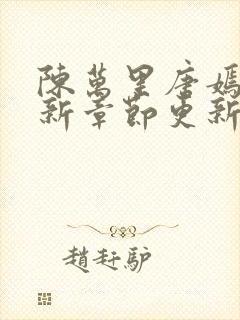 陳萬里唐嫣
新章節更新
趙赶驴